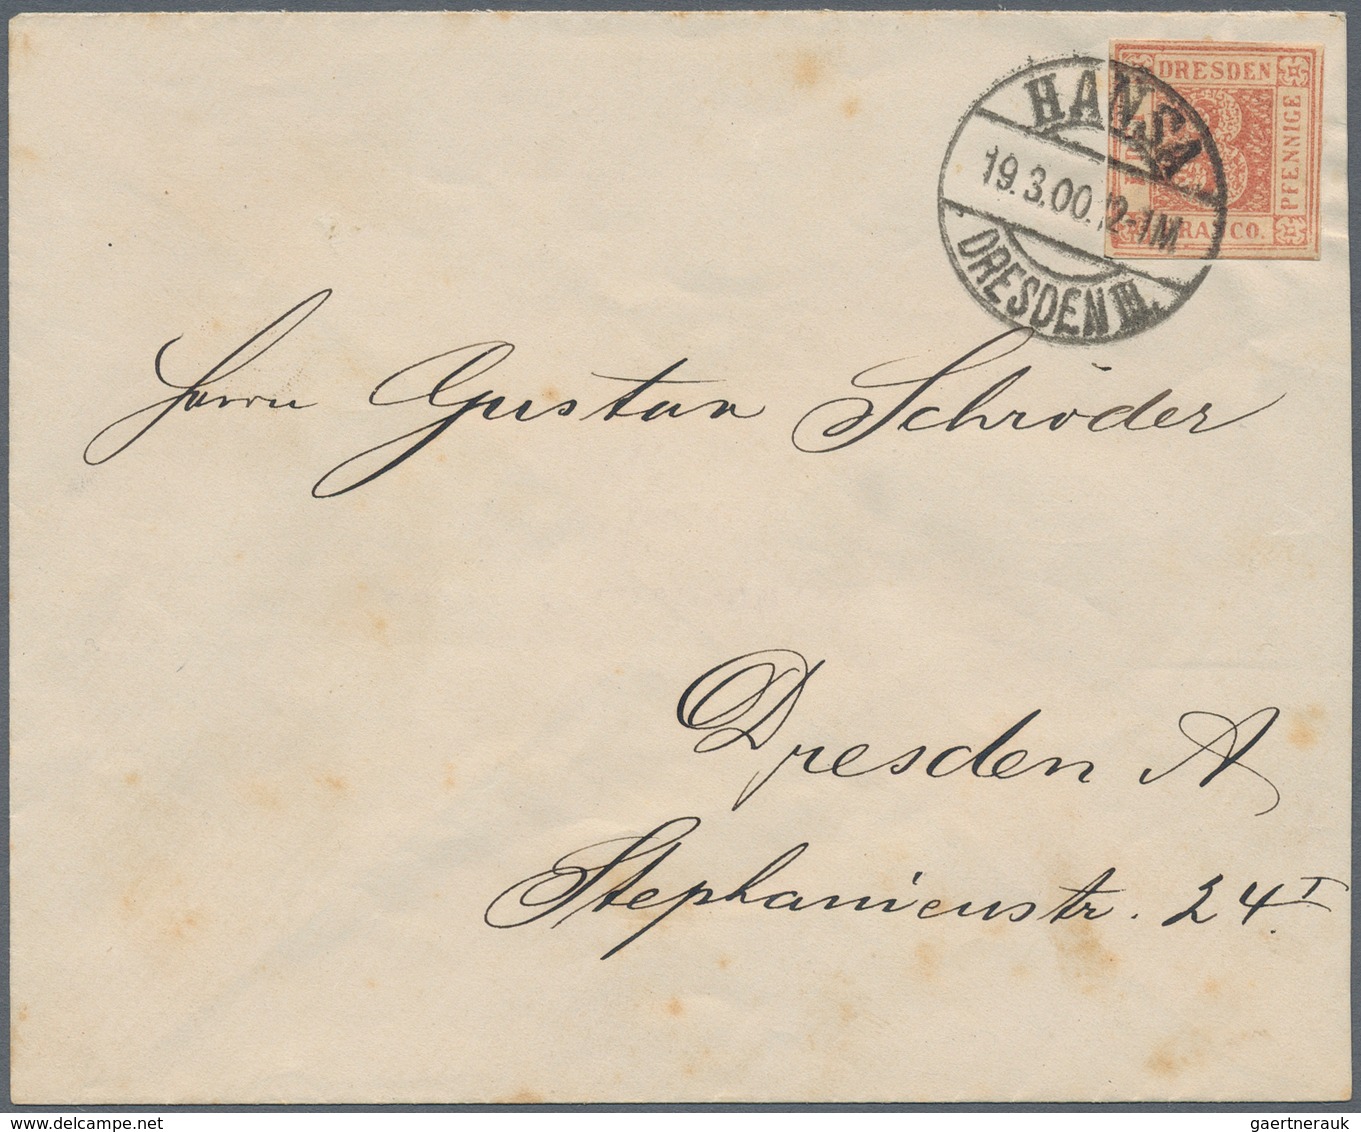 DRESDEN
PFENNIGE
FRANCO.
HANSA
19.3.00. 12-1M.
DRESDEN III.
Herrn Gustav Schröder
Dresden A
Stephanienstr. 24 I
gaertnerauk